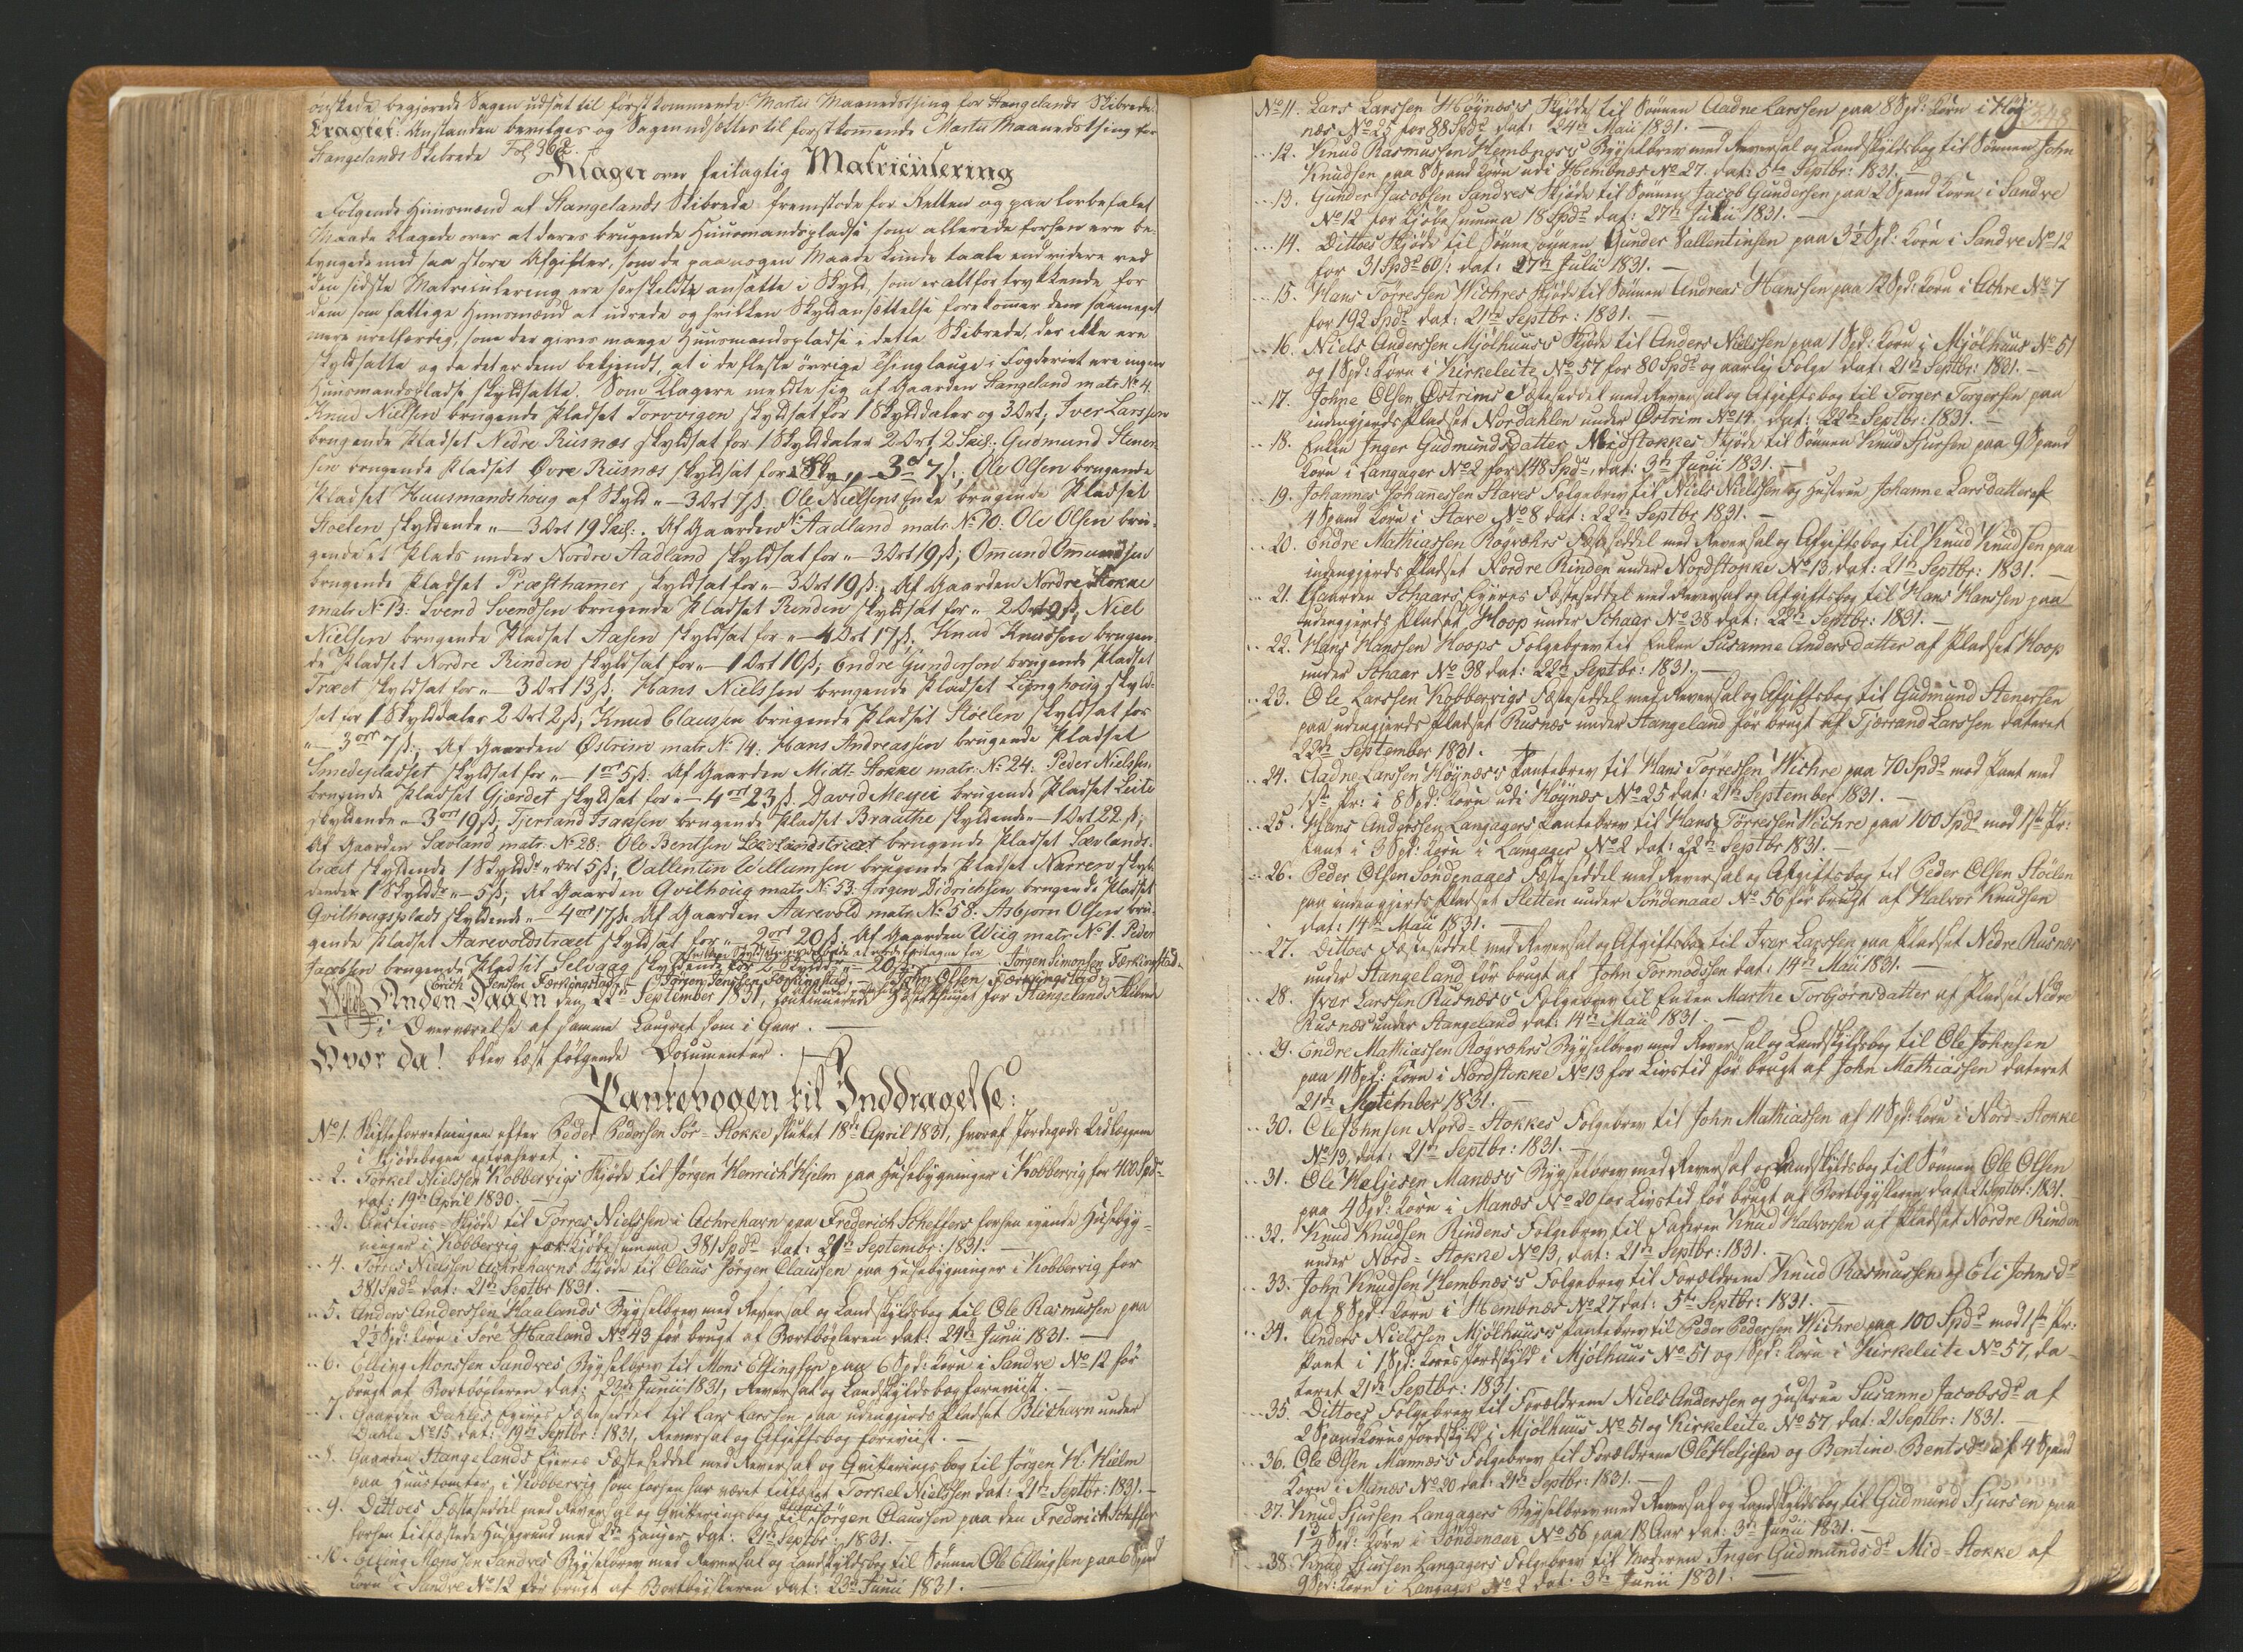 ønskede, begjærede Sagen udsat til først kommende Martii Maanedsthing for Stangelands Skibrede.
Eragtet: Anstanden bevilges og Sagen udsættes til førstkommende Martii Maanedsthing for
Stangelands Skibrede Fol 362.
Klager over feilagtig Matriculering
Følgende Huusmænd af Stangelands Skibrede fremstode for Retten og paa lovbefalet
Maade klagede over at deres brugende Huusmandspladse som allerede forhen ere be-
tyngede med saa store Afgifter, som de paa nogen Maade kunde taale end videre ved
den sidste Matriculering ere særskeldte ansatte i Skyld, som er alt for trykkende for
dem som fattige Huusmænd at udrede og hvilken Skyldansættelse forekommer dem saameget
mere uretfærdig, som der gives mange Huusmandspladse i dette Skibrede, der ikke ere
skyldsatte og da det er dem bekjendt, at i de fleste øvrige Thinglauge i Fogderiet ere ingen
Huusmandspladse skyldsatte. Som Klagere meldte sig af Gaarden Stangeland matr. No 4.
Knud Nielsen brugende Pladset Torvvigen skyldsat for 1 Skylddaler og 3 Ort; Iver Larssen
brugende Pladset Nedre Rusnæs skyldsat for 1 Skylddaler 2 Ort 2 Skil: Gudmund Stener-
sen brugende Pladset Øvre Rusnæs skyldsat for 3 7ß; Ole Olsen brugende
Pladset Huusmandshoug af Skyld " - 3 Ort 7ß; Ole Nielsens Enke brugende Pladset
Støelen skyldende " - 3 Ort 19 Skil: Af Gaarden Aadland matr No 10: Ole Olsen bru-
gende et Plads under Nordre Aadland skyldsat for " - 3 Ort 19ß; Omund Omundsen
brugende Pladset Præsthamer skyldsat for " - 3 Ort 19ß; Af Gaarden Nordre Stokke
matr No 13: Svend Svendsen brugende Pladset Rinden skyldsat for " 2 Ort 9ß; Niel
Nielsen brugende Pladset Aasen skyldsat for " - 4 Ort 17ß. Knud Knudsen brugen-
de Pladset Nordre Rinden skyldsat for " - 1 Ort 10ß; Endre Gundersen brugende Pladset
Træet skyldsat for " - 3 Ort 13ß; Hans Nielssen brugende Pladset Lynghoug skyld-
sat for 1 Skylddaler 2 Ort 2ß; Knud Claussen brugende Pladset Støelen skyldsat for
" - 3 ort 7ß; Af Gaarden Østrim matr. No 14: Hans Andreassen brugende Pladset
Smedepladset skyldsat for " - 1 ort 5ß: Af Gaarden Midt-Stokke matr: No 24: Peder Nielssen
brugende Pladset Gjærdet skyldsat for " - 4 ort 23ß. David Meyer brugende Pladset Leite
skyldende " - 3 ort 19ß; Tjerrand Isaksen brugende Pladset Brauthe skyldende " - 1 Ort 22ß;
Af Gaarden Sævland matr. No 28: Ole Bentsen Sævlandstræet brugende Pladset Sævlands-
træet skyldende 1 Skyldd " ort 5ß; Vallentin Willumsen brugende Pladset Narren skyl-
dende 1 Skyldd " - 5ß; Af Gaarden Qvilhoug matr. No 53: Jørgen Didrichsen brugende Pladset
Qvilhougsplads skyldende " - 4 ort 17ß. Af Gaarden Aarevold matr. No 58: Asbjørn Olsen bru-
gende Pladset Aarevoldstræet skyldsat for " - 2 ort 20ß. Af Gaarden Wiig matr. No 1. Peder
Jacobsen brugende Pladset Selvaag skyldende for 2 Skyldd " - 20ß. Jørgen Simonsen Færkingstad.
Erich Jenssen Færkingstad, - Jørgen Jenssen Færkingstad, - John Olsen Færkingstad
Anden Dagen den 22de September 1831, continuerede Høstthinget for Stangelands Skibrede
i Overværelse af samme Laugret som i Gaar. -
Hvor da! blev læst følgende Documenter.
Pantebogen til Inddragelse:
No 1. Skifteforretningen efter Peder Pedersen Sør-Stokke sluttet 18de April 1831, hvoraf Jordegods Udlæggene
i Skjødebogen extraheret
" 2. Torkel Nielssen Kobbervigs Skjøde til Jørgen Henrich Hjelm paa Huusebygninger i Kobbervig for 400 Spd
dat: 19de April 1830. -
" 3. Auctions-Skjøde til Tørres Nielssen i Achrehavn paa Frederich Scheffers forhen eyende Husebyg-
ninger i Kobbervig for Kjøbesumma 381 Spd dat: 21de Septembr: 1831. -
" 4. Tørres Nielssen Achrehavns Skjøde til Claus Jørgen Claussen paa Husebygninger i Kobbervig for
381 Spd dat: 21de Septbr 1831. -
" 5. Anders Anderssen Haalands Bygselbrev med Reversal og Landskyldsbog til Ole Rasmussen paa
2½ Spd: Korn i Søre Haaland No 43 før brugt af Bortbygleren dat: 24de Junii 1831. -
" 6. Elling Monssen Sandves Bygselbrev til Mons Ellingsen paa 6 Spd: Korn i Sandve No 12 før
brugt af Bortbygleren dat: 23de Junii 1831, Reversal og Landskyldsbog foreviist. -
" 7. Gaarden Dahles Eyeres Fæsteseddel til Lars Larssen paa udengjerds Pladset Blichavn under
Dahle No 15 dat: 19de Septbr: 1831, Reversal og Afgiftsbog foreviist. -
" 8. Gaarden Stangelands Eyeres Fæsteseddel med Reversal og Qvitteringsbog til Jørgen H: Hielm
paa Huustomter i Kobbervig som forhen har været tilfæstet Torkel Nielssen dat: 21de Septbr: 1831. -
" 9. Dittoes Fæsteseddel med Reversal og Qvitteringsbog til Claus Jørgen Claussen paa den Frederich Scheffer
forhen tilfæstede Huusegrund med 2de Hauger, dat: 21de Septbr: 1831.
" 10. Elling Monssen Sandves Bygselbrev med Reversal og Landskyldsbog til Sønnen Ole Ellingsen paa 6 Spand
Korn i Sandve No 12 før brugt af Bortbygsleren dat: 23de Junii 1831.
348
No 11. Lars Larssen Høynæs's Skjøde til Sønnen Aadne Larssen paa 8 Spd: Korn i Høy-
næs No 25 for 88 Spd dat: 24de Maii 1831. -
" 12. Knud Rasmussen Hembnæs's Bygselbrev med Reversal og Landskyldsbog til Sønnen John
Knudsen paa 8 Spand Korn udi Hembnæs No 27. dat: 5te Septbr: 1831. -
" 13. Gunder Jacobsen Sandves Skjøde til Sønnen Jacob Gundersen paa 2 Spand Korn i Sandve
No 12 for Kjøbesumma 18 Spd dat: 27de Julii 1831. -
" 14. Dittoes Skjøde til Sønne sønnen Gunder Vallentinsen paa 3½ Spd: Korn i Sandve No 12
for 31 Spd 60ß: dat: 27de Julii 1831. -
" 15. Hans Tørressen Wichres Skjøde til Sønnen Andreas Hanssen paa 12 Spd: Korn i Achre No 7
for 192 Spd dat: 21de Septbr: 1831. -
" 16. Niels Anderssen Mjølhuus's Skjøde til Anders Nielssen paa 1 Spd: Korn i Mjølhuus No 51
og 1 Spd: Korn i Kirkeleite No 57 for 80 Spd og aarlig Folge dat: 21de Septbr: 1831. -
" 17. Johne Olsen Østrims Fæsteseddel med Reversal og Afgiftsbog til Torger Torgersen paa
indengjerds Pladset Nordahlen under Østrim No 14. dat: 22de Septbr: 1831. -
" 18. Enken Inger Gudmundsdatter Midstokkes Skjøde til Sønnen Knud Sjursen paa 9 Spand
Korn i Langager No 2 for 148 Spd, dat: 3de Junii 1831. -
" 19. Johannes Johannessen Staves Folgebrev til Niels Nielssen og Hustrue Johanne Larsdatter af
4 Spand Korn i Stave No 8 dat: 22de Septbr 1831. -
" 20. Endre Mathiassen Rogvæhrs Fæsteseddel med Reversal og Afgiftsbog til Knud Knudsen paa
indengjerds Pladset Nordre Rinden under Nordstokke No 13. dat: 21de Septbr: 1831. -
" 21. Gaarden Schaars Eyeres Fæsteseddel med Reversal og Afgiftsbog til Hans Hanssen paa
udengjerds Pladset Hoop under Schaar No 38 dat: 22de Septbr: 1831. -
" 22. Hans Hanssen Hoops Folgebrev til Enken Susanne Andersdatter af Pladset Hoop
under Schaar No 38 dat: 22de Septbr: 1831. -
" 23. Ole Larssen Kobbervigs Fæsteseddel med Reversal og Afgiftsbog til Gudmund Stenersen
paa udengjerds Pladset Rusnæs under Stangeland før brugt af Tjærrand Larssen dateret
22de September 1831.
" 24. Aadne Larssen Høynæs's Pantebrev til Hans Tørressen Wichre paa 70 Spd mod Pant med
1ste Pr: i 8 Spd: Korn udi Høynæs No 25 dat: 21de September 1831. -
" 25. Hans Anderssen Langagers Pantebrev til Hans Tørressen Wichre paa 100 Spd mod 1ste Pr:
Pant i 3 Spd: Korn i Langager No 2 dat: 22de Septbr 1831. -
" 26. Peder Olsen Søndenaaes Fæsteseddel med Reversal og Afgiftsbog til Peder Olsen Støelen
paa indengjerds Pladset Sletten under Søndenaae No 56 før brugt af Halvor Knudsen
dat: 14de Maii 1831. -
" 27. Dittoes Fæsteseddel med Reversal og Afgiftsbog til Iver Larssen paa Pladset Nedre Rusnæs
under Stangeland før brugt af John Tormodssen dat: 14de Maii 1831. -
" 28. Iver Larssen Rusnæs's Folgebrev til Enken Marthe Torbjørnsdatter af Pladset Nedre
Rusnæs under Stangeland dat: 14de Maii 1831. -
" 29. Endre Mathiassen Rogvæhrs Bygselbrev med Reversal og Landskyldsbog til Ole Johnsen
paa 11 Spd: Korn i Nordstokke No 13 for Livstid før brugt af John Mathiassen dateret
21de September 1831. -
" 30. Ole Johnsen Nord-Stokkes Folgebrev til John Mathiassen af 11 Spd: Korn i Nord-Stokke
No 13, dat: 21de Septbr: 1831. -
" 31. Ole Heljesen Manæs's Bygselbrev med Reversal og Landskyldsbog til Sønnen Ole Olsen
paa 4 Spd: Korn i Manæs No 20 for Livstid før brugt af Bortbygsleren, dat: 21 Septbr: 1831.
" 32. Knud Knudsen Rindens Folgebrev til Faderen Knud Halvorsen af Pladset Nordre Rinden
under Nord-Stokke No 13, dat: 21de Septbr: 1831. -
" 33. John Knudsen Hembnæs's Folgebrev til Forældrene Knud Rasmussen og Eli Johnsd
af 8 Spd: Korn i Hembnæs No 27 dat: 5te Septbr: 1831. -
" 34. Anders Nielssen Mjølhuus's Pantebrev til Peder Pedersen Wichre paa 100 Spd mod 1ste Pr:
Pant i 1 Spd: Korns Jordskyld i Mjølhuus No 51 og 1 Spd: Korn i Kirkeleite No 57, da-
teret 21de Septbr: 1831.
" 35. Dittoes Folgebrev til Forældrene Niels Anderssen og Hustrue Susanne Jacobsd af
2 Spand Korns Jordskyld i Mjølhuus No 51 og Kirkeleite No 57 dat: 21 Septbr: 1831. -
" 36. Ole Olsen Mannæs's Folgebrev til Forældrene Ole Heljesen og Bentine Bentsd af 4 Spand
Korn i Manæs No 20 dat: 21de Septbr: 1831. -
" 37. Knud Sjursen Langagers Bygselbrev med Reversal og Landskyldsbog til Gudmund Sjursen paa
1¾ Spd: Korn i Søndenaae No 56 paa 18 Aar dat: 3de Junii 1831. -
" 38. Knud Sjursen Langagers Folgebrev til Moderen Inger Gudmundsd Mid-Stokke af
9 Spd: Korn i Langager No 2 dat: 3de Junii 1831. -